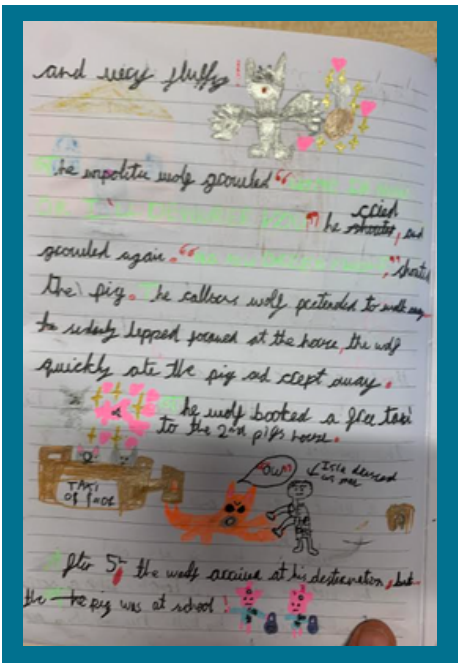 and very fluffy!
The unpolite wolf growled “
” he cried shouted, and
growled again. “ ,” shouted
the pig. The callous wolf pretended to walk away
he sudenly lepped forward at the house, the wolf
quickly ate the pig and crept away.
The wolf booked a free taxi
to the 2nd pigs house.
TAXI
OW
Isla dressed
as me
After 5 the wolf arrived at his destination, but
the he pig was at school!